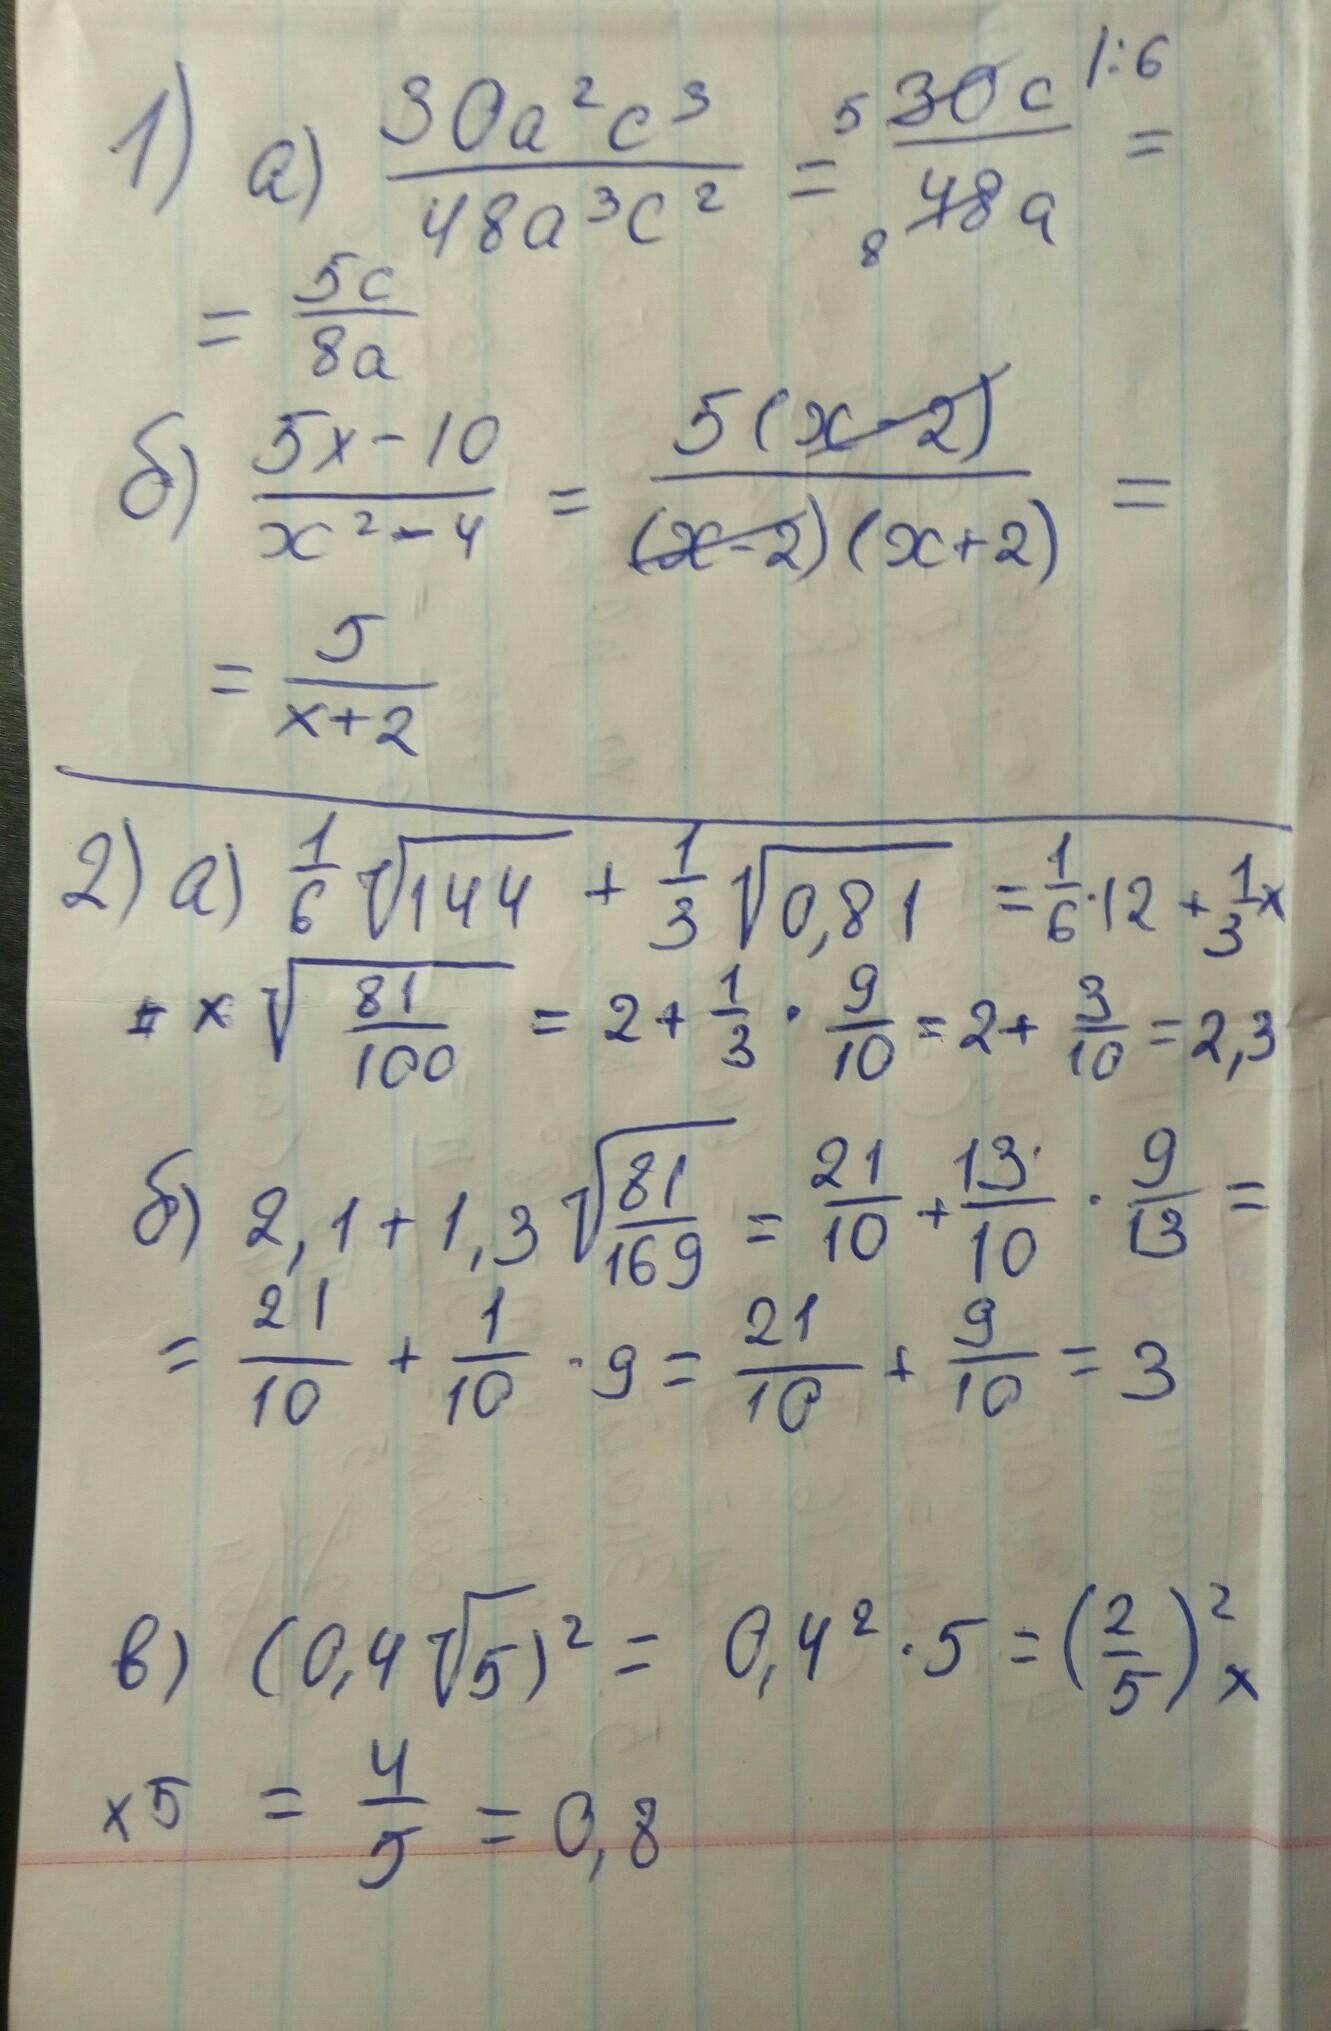 1) а) 30a²c³/48a³c² = 5 30c/8 48a |:6 =
= 5c/8a
б) 5x-10/x²-4 = 5(x-2)/(x-2)(x+2) =
= 5/x+2
2) а) 1/6 √144 + 1/3 √0,81 = 1/6·12 + 1/3 x
x √81/100 = 2 + 1/3 · 9/10 = 2 + 3/10 = 2,3
б) 2,1 + 1,3 √81/169 = 21/10 + 13/10 · 9/13 =
= 21/10 + 1/10 · 9 = 21/10 + 9/10 = 3
в) (0,4 √5)² = 0,4² · 5 = (2/5)² x
x 5 = 4/5 = 0,8